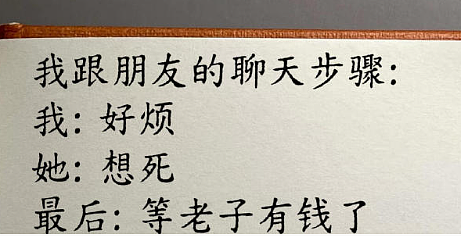 我跟朋友的聊天步骤:
我: 好烦
她: 想死
最后: 等老子有钱了